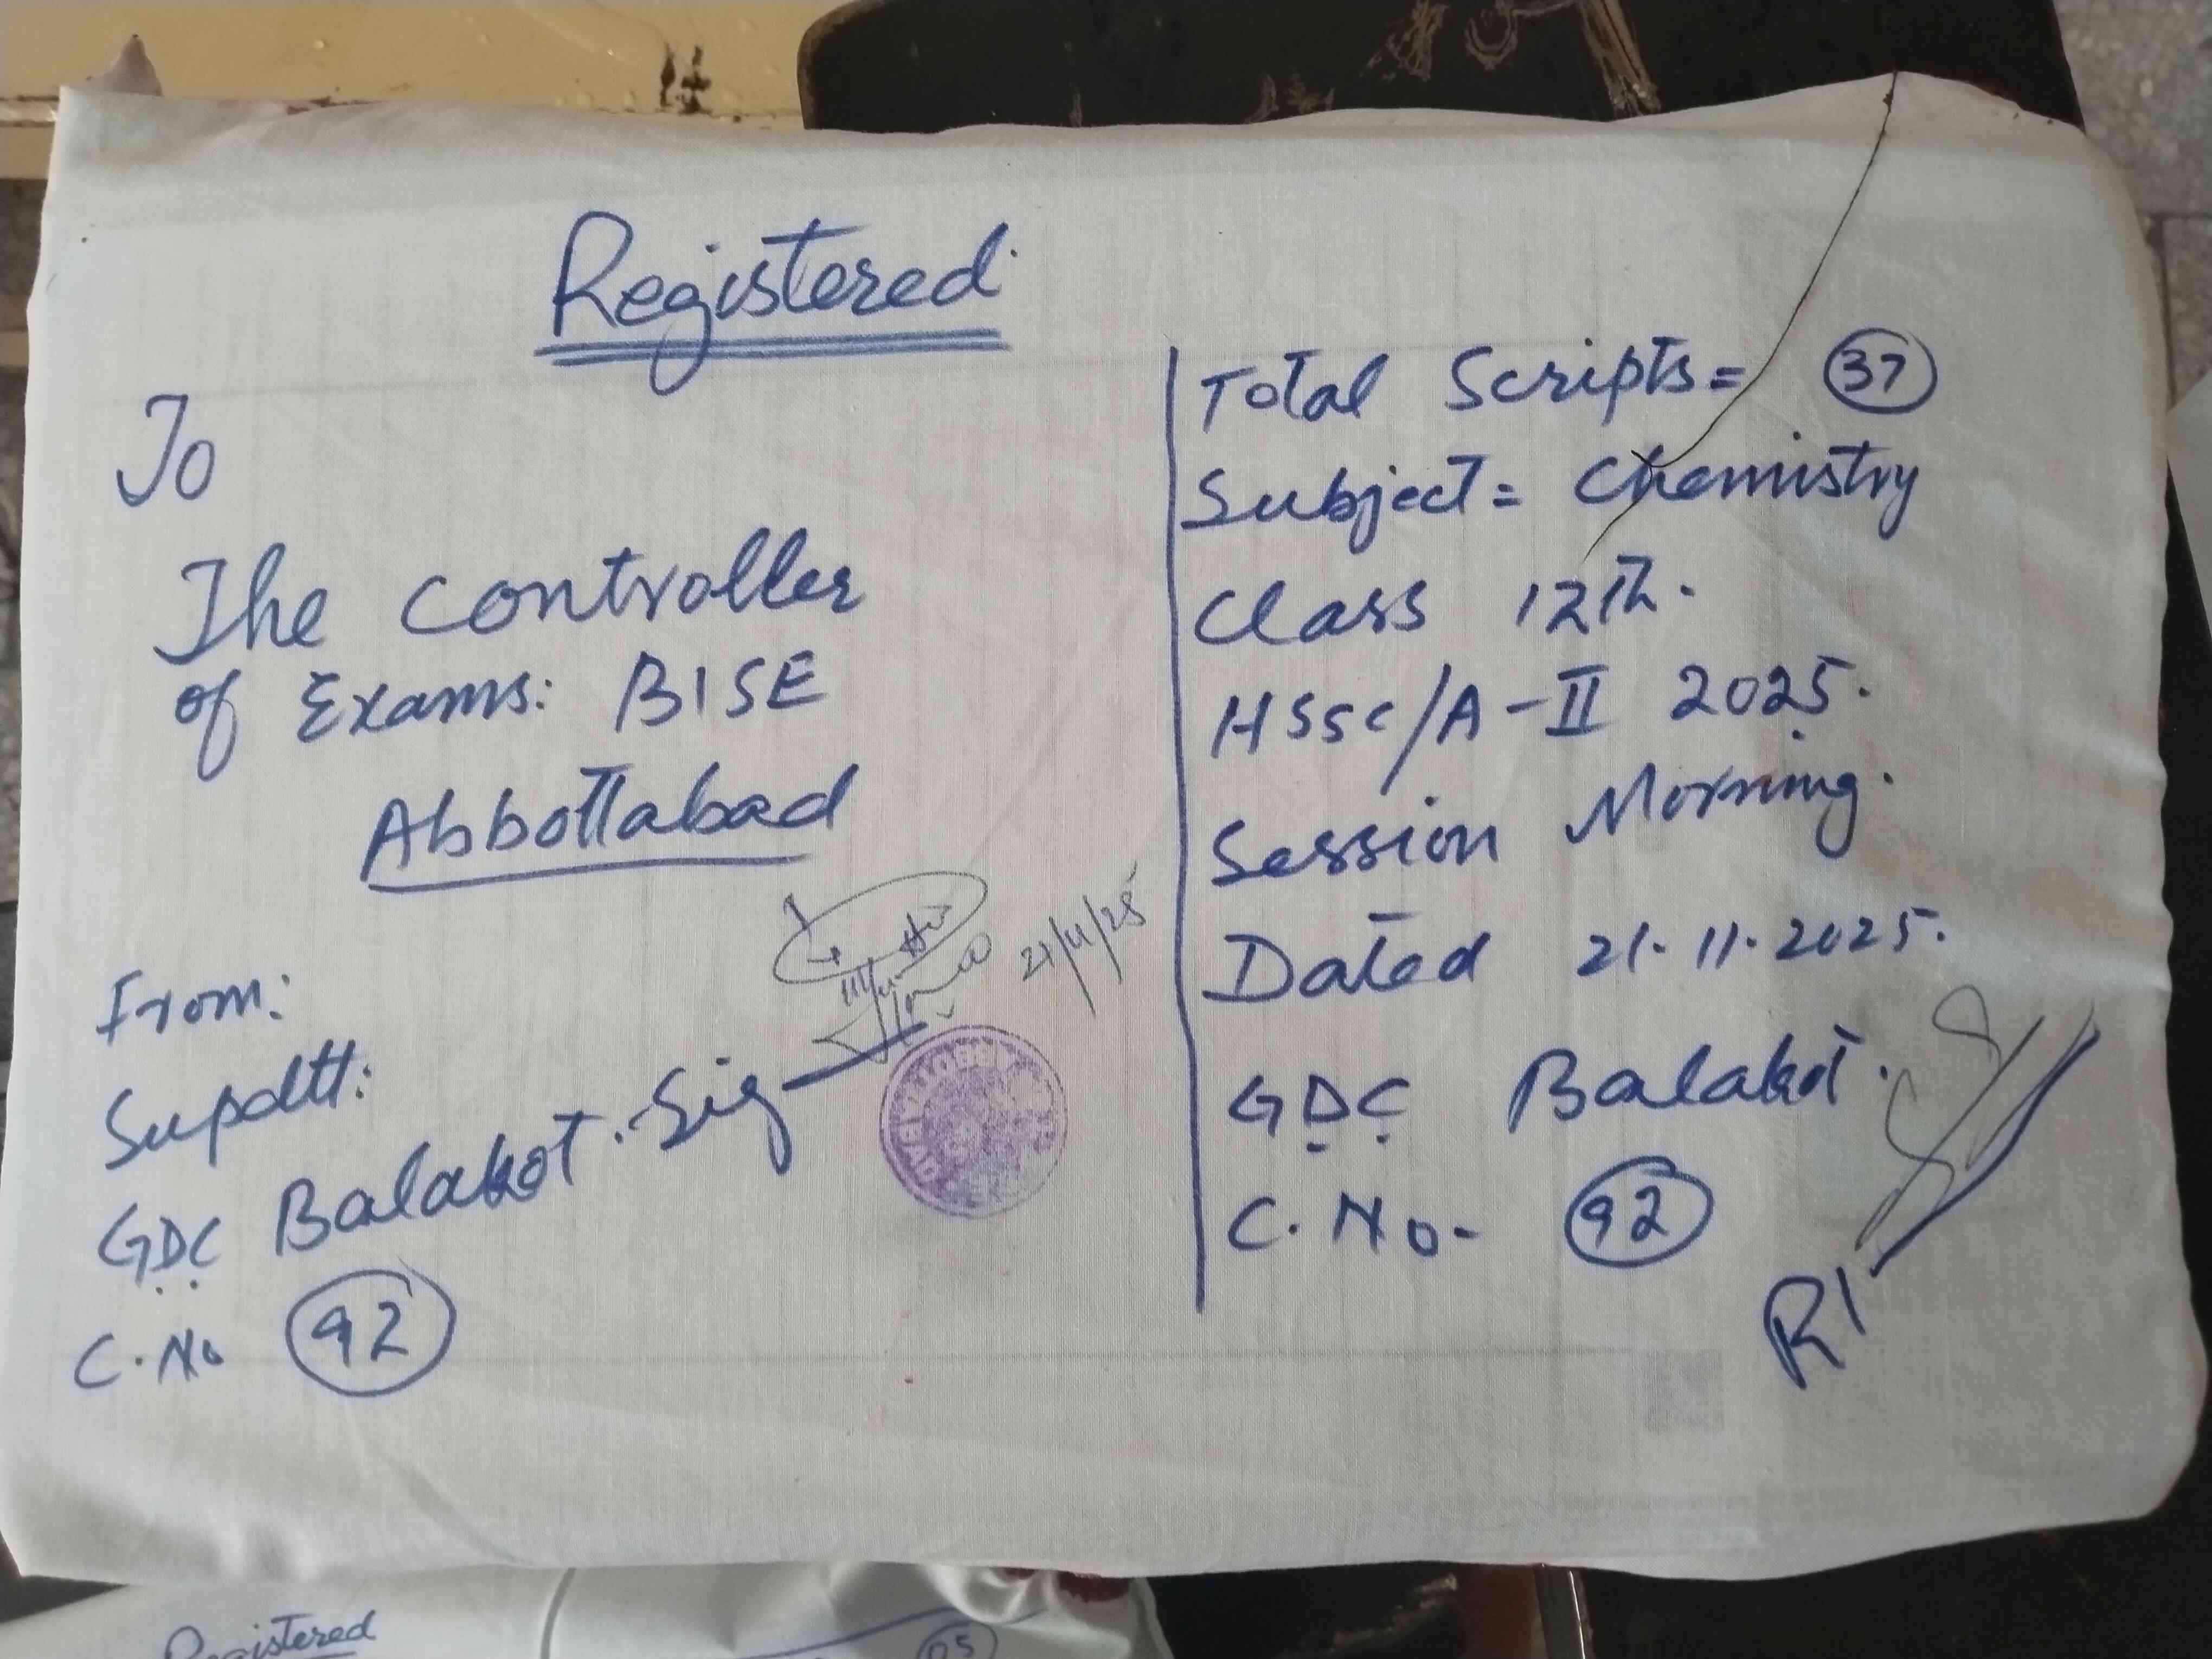 Registered
To
The Controller
of Exams: BISE
Abbottabad
21/11/25
From:
Supdtt:
GDC Balakot. Sig
C. No 92
Total Scripts = 37
Subject = Chemistry
Class 12th.
HSSC/A-II 2025.
Session Morning.
Dated 21.11.2025.
GDC Balakot.
C. No- 92
RI
Registered
05